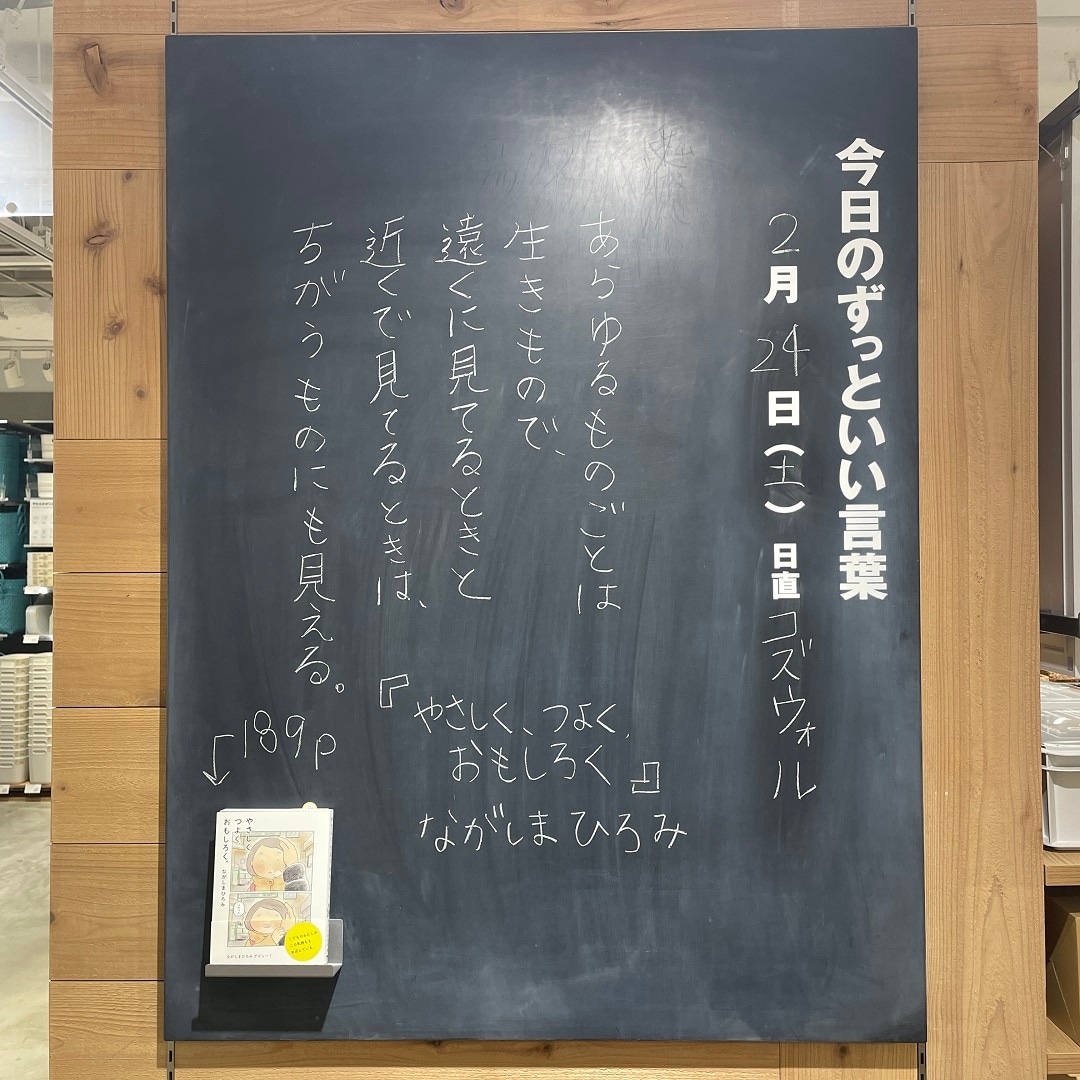 今日のずっといい言葉
2月24日(土) 日直 コズウォル
あらゆるものごとは
生きもので、
遠くに見てるときと
近くで見てるときは、
ちがうものにも見える。
『やさしく、つよく、
おもしろく』
ながしまひろみ
189p
やさしく
つよく
おもしろく。
ながしまひろみ